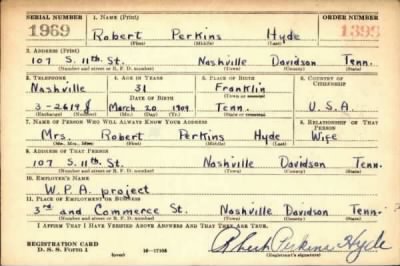 SERIAL NUMBER 1. NAME (Print) ORDER NUMBER
1969 Robert Perkins Hyde 1393
(First) (Middle) (Last)
2. ADDRESS (Print)
107 S. 11th St. Nashville Davidson Tenn.
(Number and street or R. F. D. number) (Town) (County) (State)
3. TELEPHONE 4. AGE IN YEARS 5. PLACE OF BIRTH 6. COUNTRY OF CITIZENSHIP
Nashville 31 Franklin
DATE OF BIRTH (Town or county)
3-2619 J March 20 1909 Tenn. U.S.A.
(Exchange) (Number) (Mo.) (Day) (Yr.) (State or country)
7. NAME OF PERSON WHO WILL ALWAYS KNOW YOUR ADDRESS 8. RELATIONSHIP OF THAT PERSON
Mrs. Robert Perkins Hyde Wife
(Mr., Mrs., Miss) (First) (Middle) (Last)
9. ADDRESS OF THAT PERSON
107 S. 11th St. Nashville Davidson Tenn.
(Number and street or R. F. D. number) (Town) (County) (State)
10. EMPLOYER'S NAME
W.P.A. project
11. PLACE OF EMPLOYMENT OR BUSINESS
3rd and Commerce St. Nashville Davidson Tenn.
(Number and street or R. F. D. number) (Town) (County) (State)
I AFFIRM THAT I HAVE VERIFIED ABOVE ANSWERS AND THAT THEY ARE TRUE.
REGISTRATION CARD
D. S. S. Form 1 (over) 16—17105 Robert Perkins Hyde
(Registrant's signature)